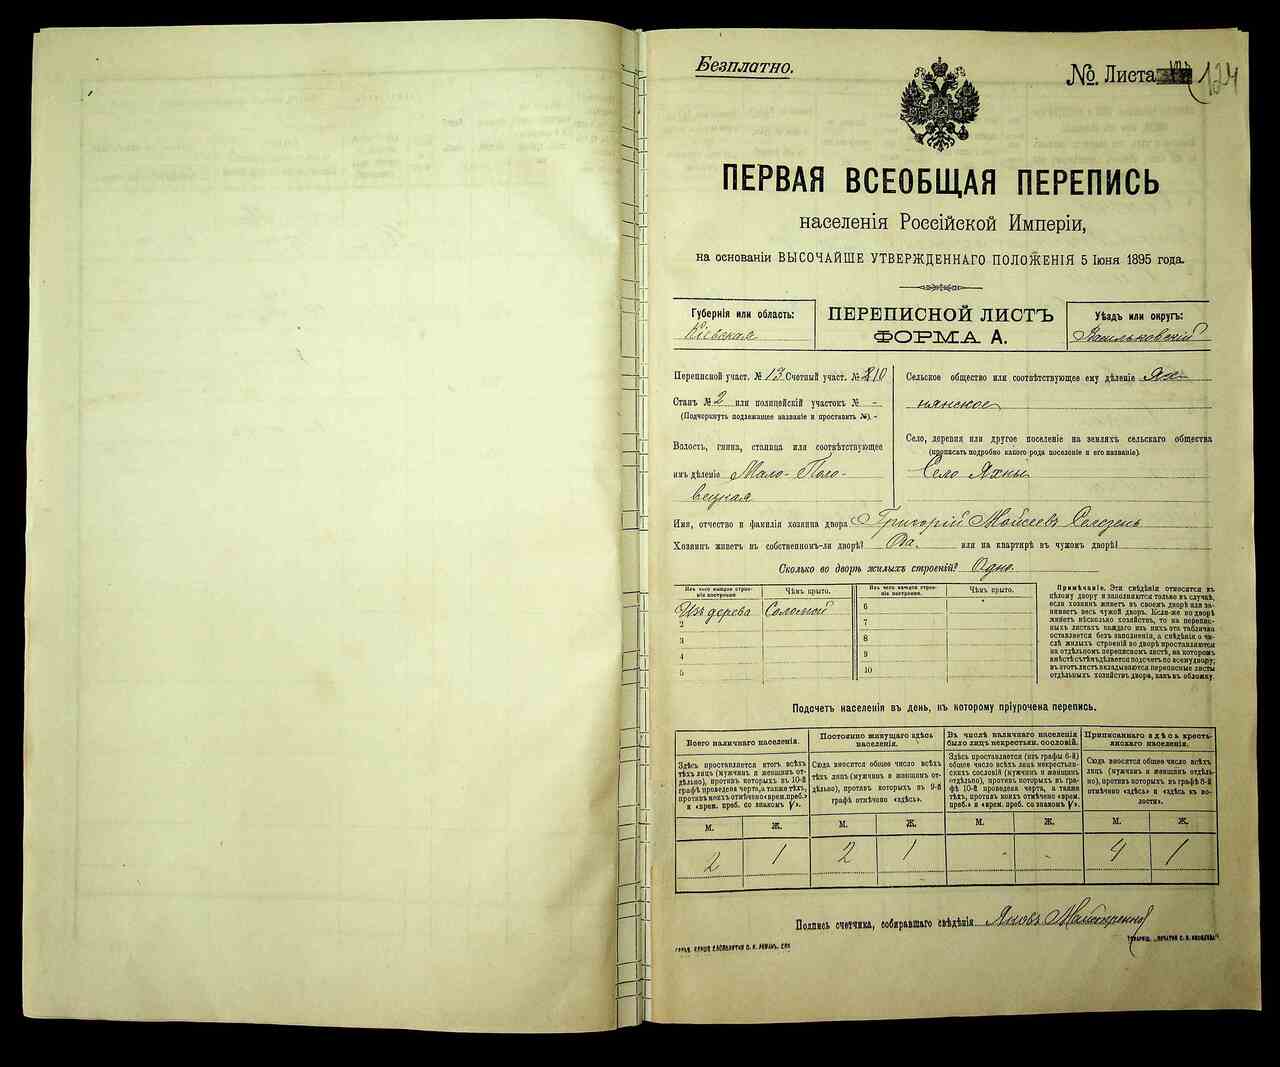 Безплатно.
№ Листа 124
ПЕРВАЯ ВСЕОБЩАЯ ПЕРЕПИСЬ
населенія Россійской Имперіи,
на основаніи ВЫСОЧАЙШЕ УТВЕРЖДЕННАГО ПОЛОЖЕНІЯ 5 Іюня 1895 года.
Губернія или область:
Кіевская
ПЕРЕПИСНОЙ ЛИСТЪ
ФОРМА А.
Уѣздъ или округъ:
Васильковскій
Переписной участ. № 13 Счетный участ. № 10
Станъ № 2 или полицейскій участокъ № -
(Подчеркнуть подлежащее названіе и проставить №).
Волость, гмина, станица или соотвѣтствующее
имъ дѣленіе Мало-Поло-
вецкая
Сельское общество или соотвѣтствующее ему дѣленіе Ях-
нянское
Село, деревня или другое поселеніе на земляхъ сельскаго общества
(прописать подробно какого рода поселеніе и его названіе).
Село Яхны
Имя, отчество и фамилія хозяина двора Григорій Мойсеевъ Селезень
Хозяинъ живетъ въ собственномъ-ли дворѣ? Да. или на квартирѣ въ чужомъ дворѣ?
Сколько во дворѣ жилыхъ строеній? Одно.
Изъ чего каждое строе-
ніе построено
Чѣмъ крыто.
Изъ дерева Соломой
2
3
4
5
Изъ чего каждое строе-
ніе построено.
Чѣмъ крыто.
6
7
8
9
10
Примѣчаніе. Эти свѣдѣнія относятся къ
цѣлому двору и заполняются только въ случаѣ,
если хозяинъ живетъ въ своемъ дворѣ или за-
нимаетъ весь чужой дворъ. Если-же во дворѣ
живетъ нѣсколько хозяйствъ, то на перепис-
ныхъ листахъ каждаго изъ нихъ эта табличка
оставляется безъ заполненія, а свѣдѣнія о чи-
слѣ жилыхъ строеній во дворѣ проставляются
на отдѣльномъ переписномъ листѣ, на которомъ
вмѣстѣ съ тѣмъ дѣлается подсчетъ по всему двору;
въ этотъ листъ вкладываются переписные листы
отдѣльныхъ хозяйствъ двора, какъ въ обложку.
Подсчетъ населенія въ день, къ которому пріурочена перепись.
Всего наличнаго населенія.
Здѣсь проставляется итогъ всѣхъ
тѣхъ лицъ (мужчинъ и женщинъ от-
дѣльно), противъ которыхъ въ 10-й
графѣ проведена черта, а также тѣхъ,
противъ коихъ отмѣчено «врем. преб.»
и «врем. преб. со знакомъ V».
М. Ж.
2 1
Постоянно живущаго здѣсь
населенія.
Сюда вносится общее число всѣхъ
тѣхъ лицъ (мужчинъ и женщинъ от-
дѣльно), противъ которыхъ въ 9-й
графѣ отмѣчено «здѣсь».
М. Ж.
2 1
Въ числѣ наличнаго населенія
было лицъ некрестьян. сословій.
Здѣсь проставляется (изъ графы 6-й)
общее число всѣхъ лицъ некрестьян-
скихъ сословій (мужчинъ и женщинъ
отдѣльно), противъ которыхъ въ гра-
фѣ 10-й проведена черта, а также
тѣхъ, противъ коихъ отмѣчено «врем.
преб.» и «врем. преб. со знакомъ V».
М. Ж.
- -
Приписаннаго здѣсь кресть-
янскаго населенія.
Сюда вносится общее число всѣхъ
лицъ (мужчинъ и женщинъ отдѣль-
но), противъ которыхъ въ графѣ 8-й
отмѣчено «здѣсь» и «здѣсь къ во-
лости».
М. Ж.
4 1
Подпись счетчика, собиравшаго свѣдѣнія Яковъ